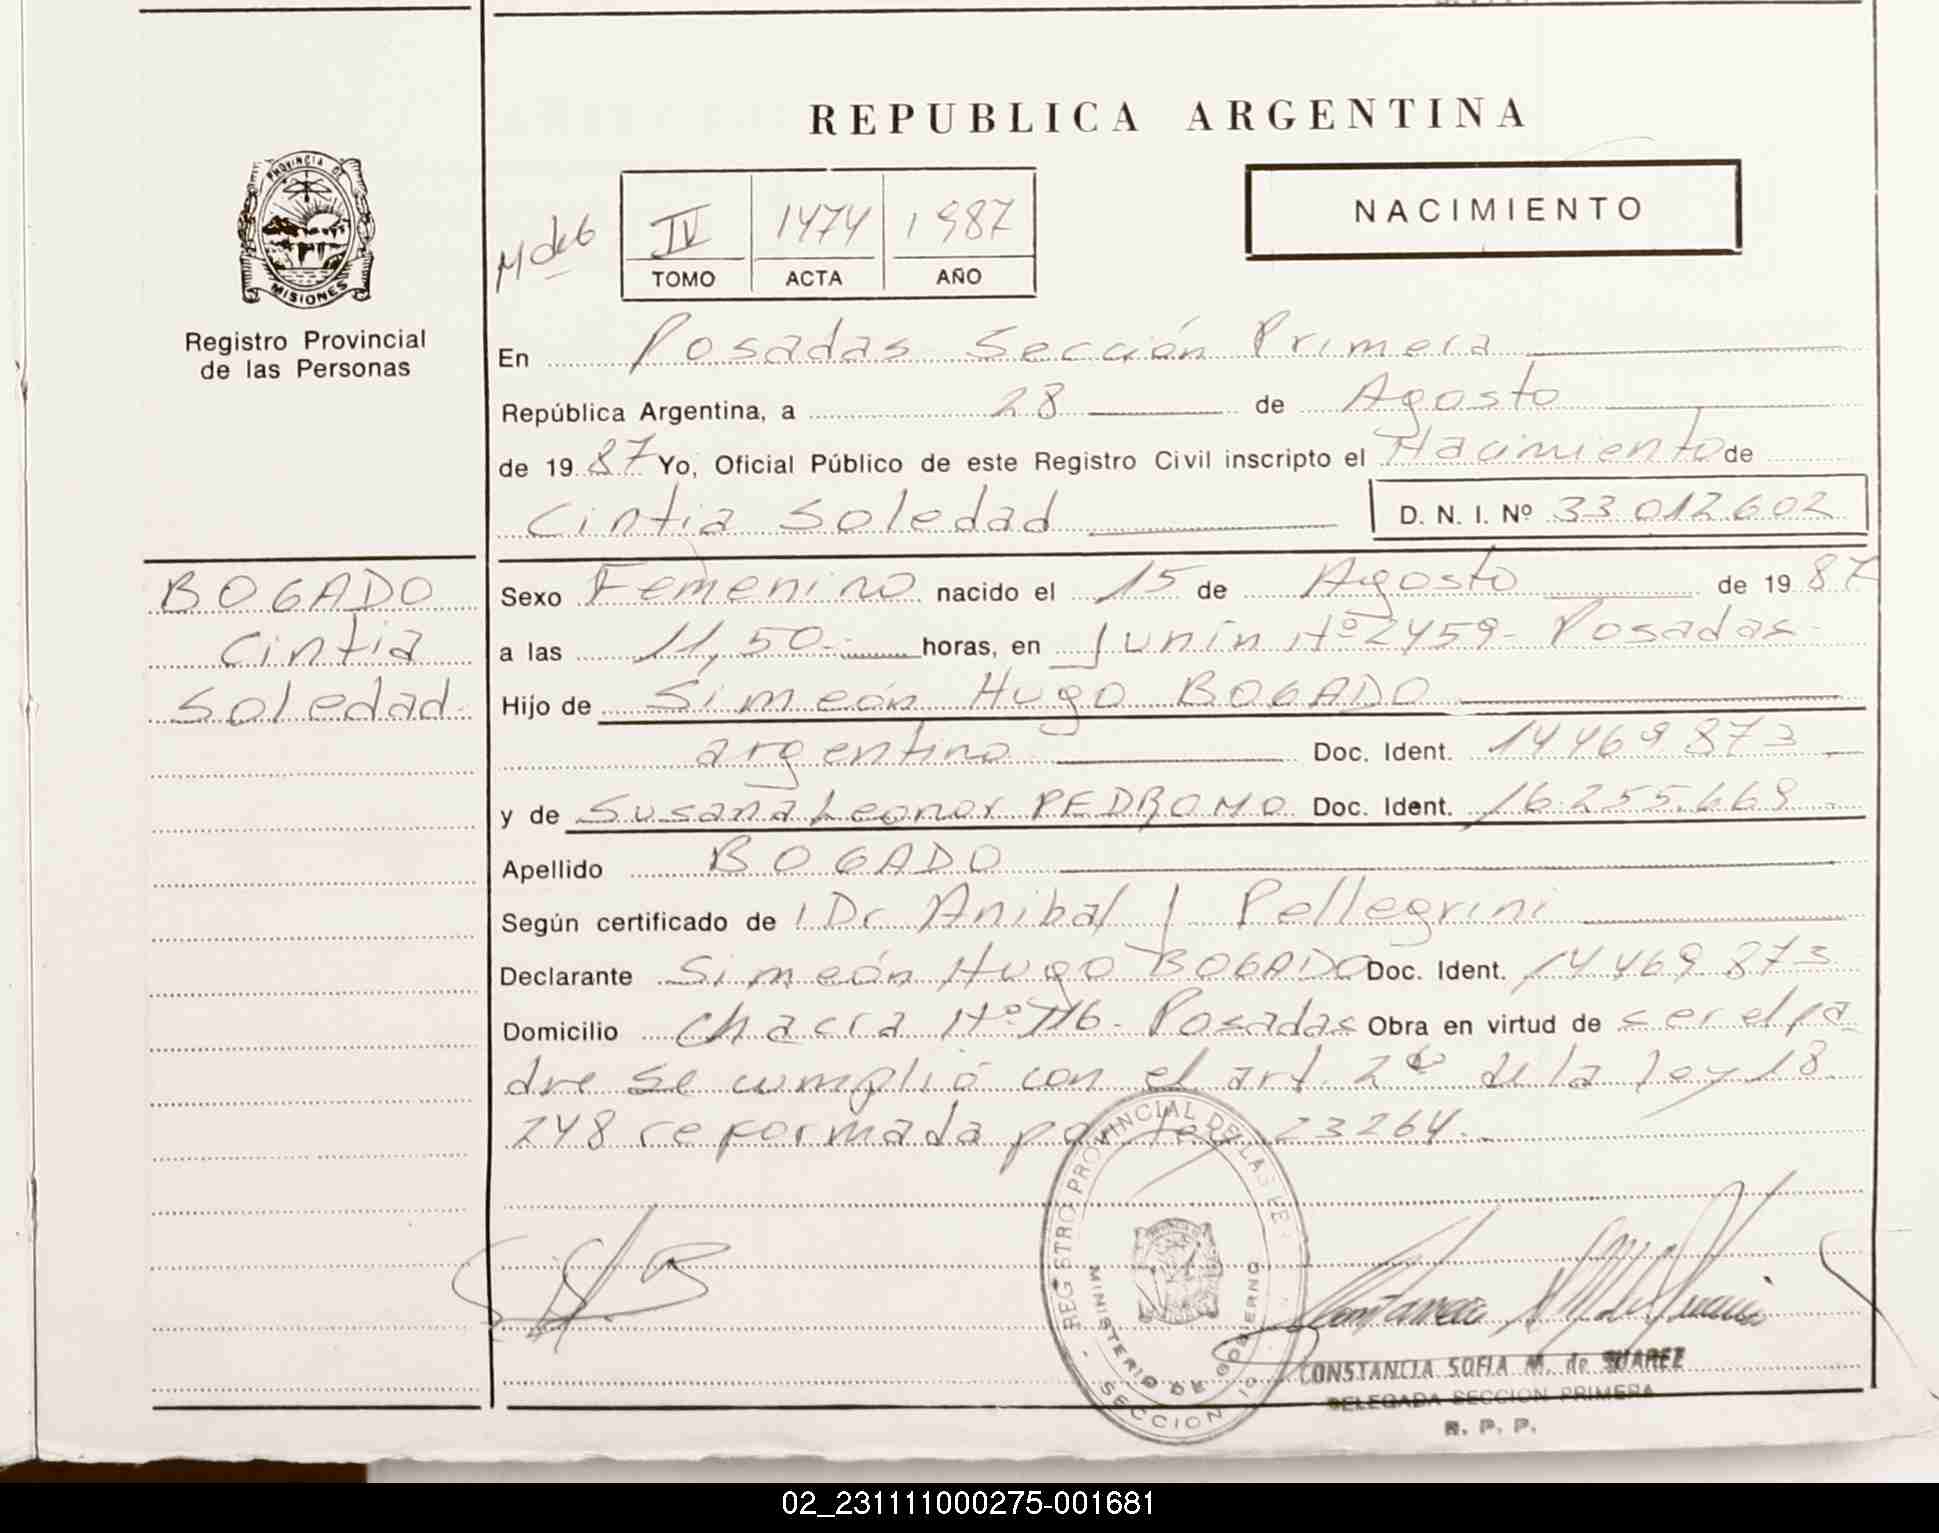 REPUBLICA ARGENTINA
PROVINCIA DE
MISIONES
Registro Provincial
de las Personas
M de 6
IV 1474 1987
TOMO ACTA AÑO
NACIMIENTO
En Posadas Sección Primera
República Argentina, a 28 de Agosto
de 19 87 Yo, Oficial Público de este Registro Civil inscripto el Nacimiento de
Cintia Soledad D. N. I. Nº 33 012 602
BOGADO
Cintia
Soledad
Sexo Femenino nacido el 15 de Agosto de 19 87
a las 11,50 horas, en Junín Nº 2459 - Posadas
Hijo de Simeón Hugo BOGADO
argentino Doc. Ident. 14469873
y de Susana Leonor PEDROMO Doc. Ident. 16.255.669
Apellido BOGADO
Según certificado de Dr Anibal J Pellegrini
Declarante Simeón Hugo BOGADO Doc. Ident. 14469873
Domicilio Chacra Nº 116 - Posadas Obra en virtud de ser el pa
dre se cumplió con el art. 2º de la ley 18
248 reformada por ley 23264.
REGISTRO PROVINCIAL DE LAS PE
MINISTERIO DE GOBIERNO
SECCION 1
CONSTANCIA SOFIA M. de SUAREZ
DELEGADA SECCION PRIMERA
R. P. P.
02_231111000275-001681